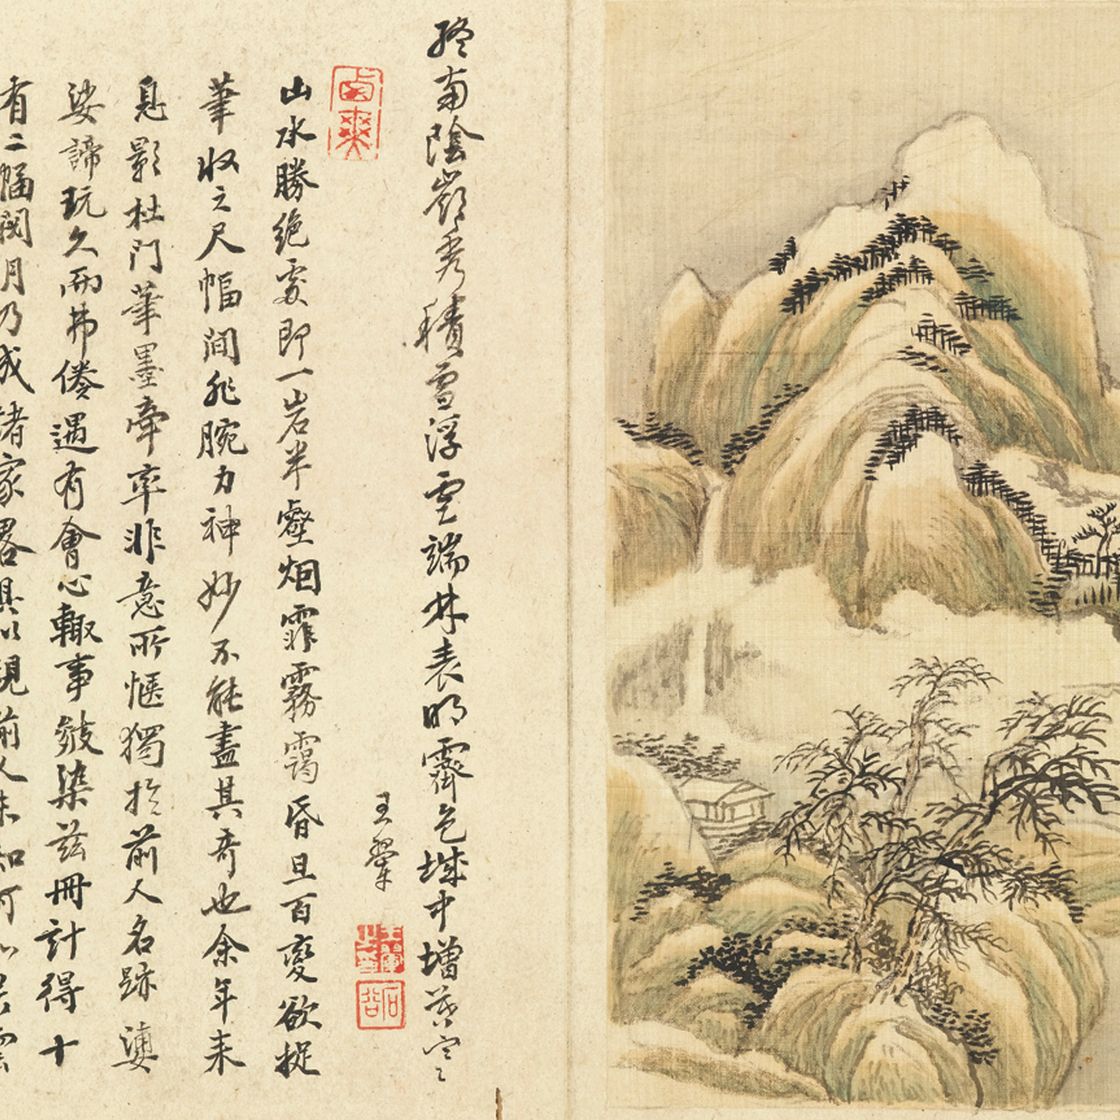 終南陰嶺秀積雪浮雲端林表明霽色城中增暮寒
王翬
王翬之印
石谷
山水勝絶處即一岩半壑烟霏霧靄昏旦百變欲捉
筆收之尺幅間非腕力神妙不能盡其奇也余年来
息影杜門筆墨牽率非意所愜獨於前人名跡婆
娑諦玩久而弗倦遇有會心輒事皴染茲冊計得十
有二幅閱月乃成諸家畧具以視前人未知何